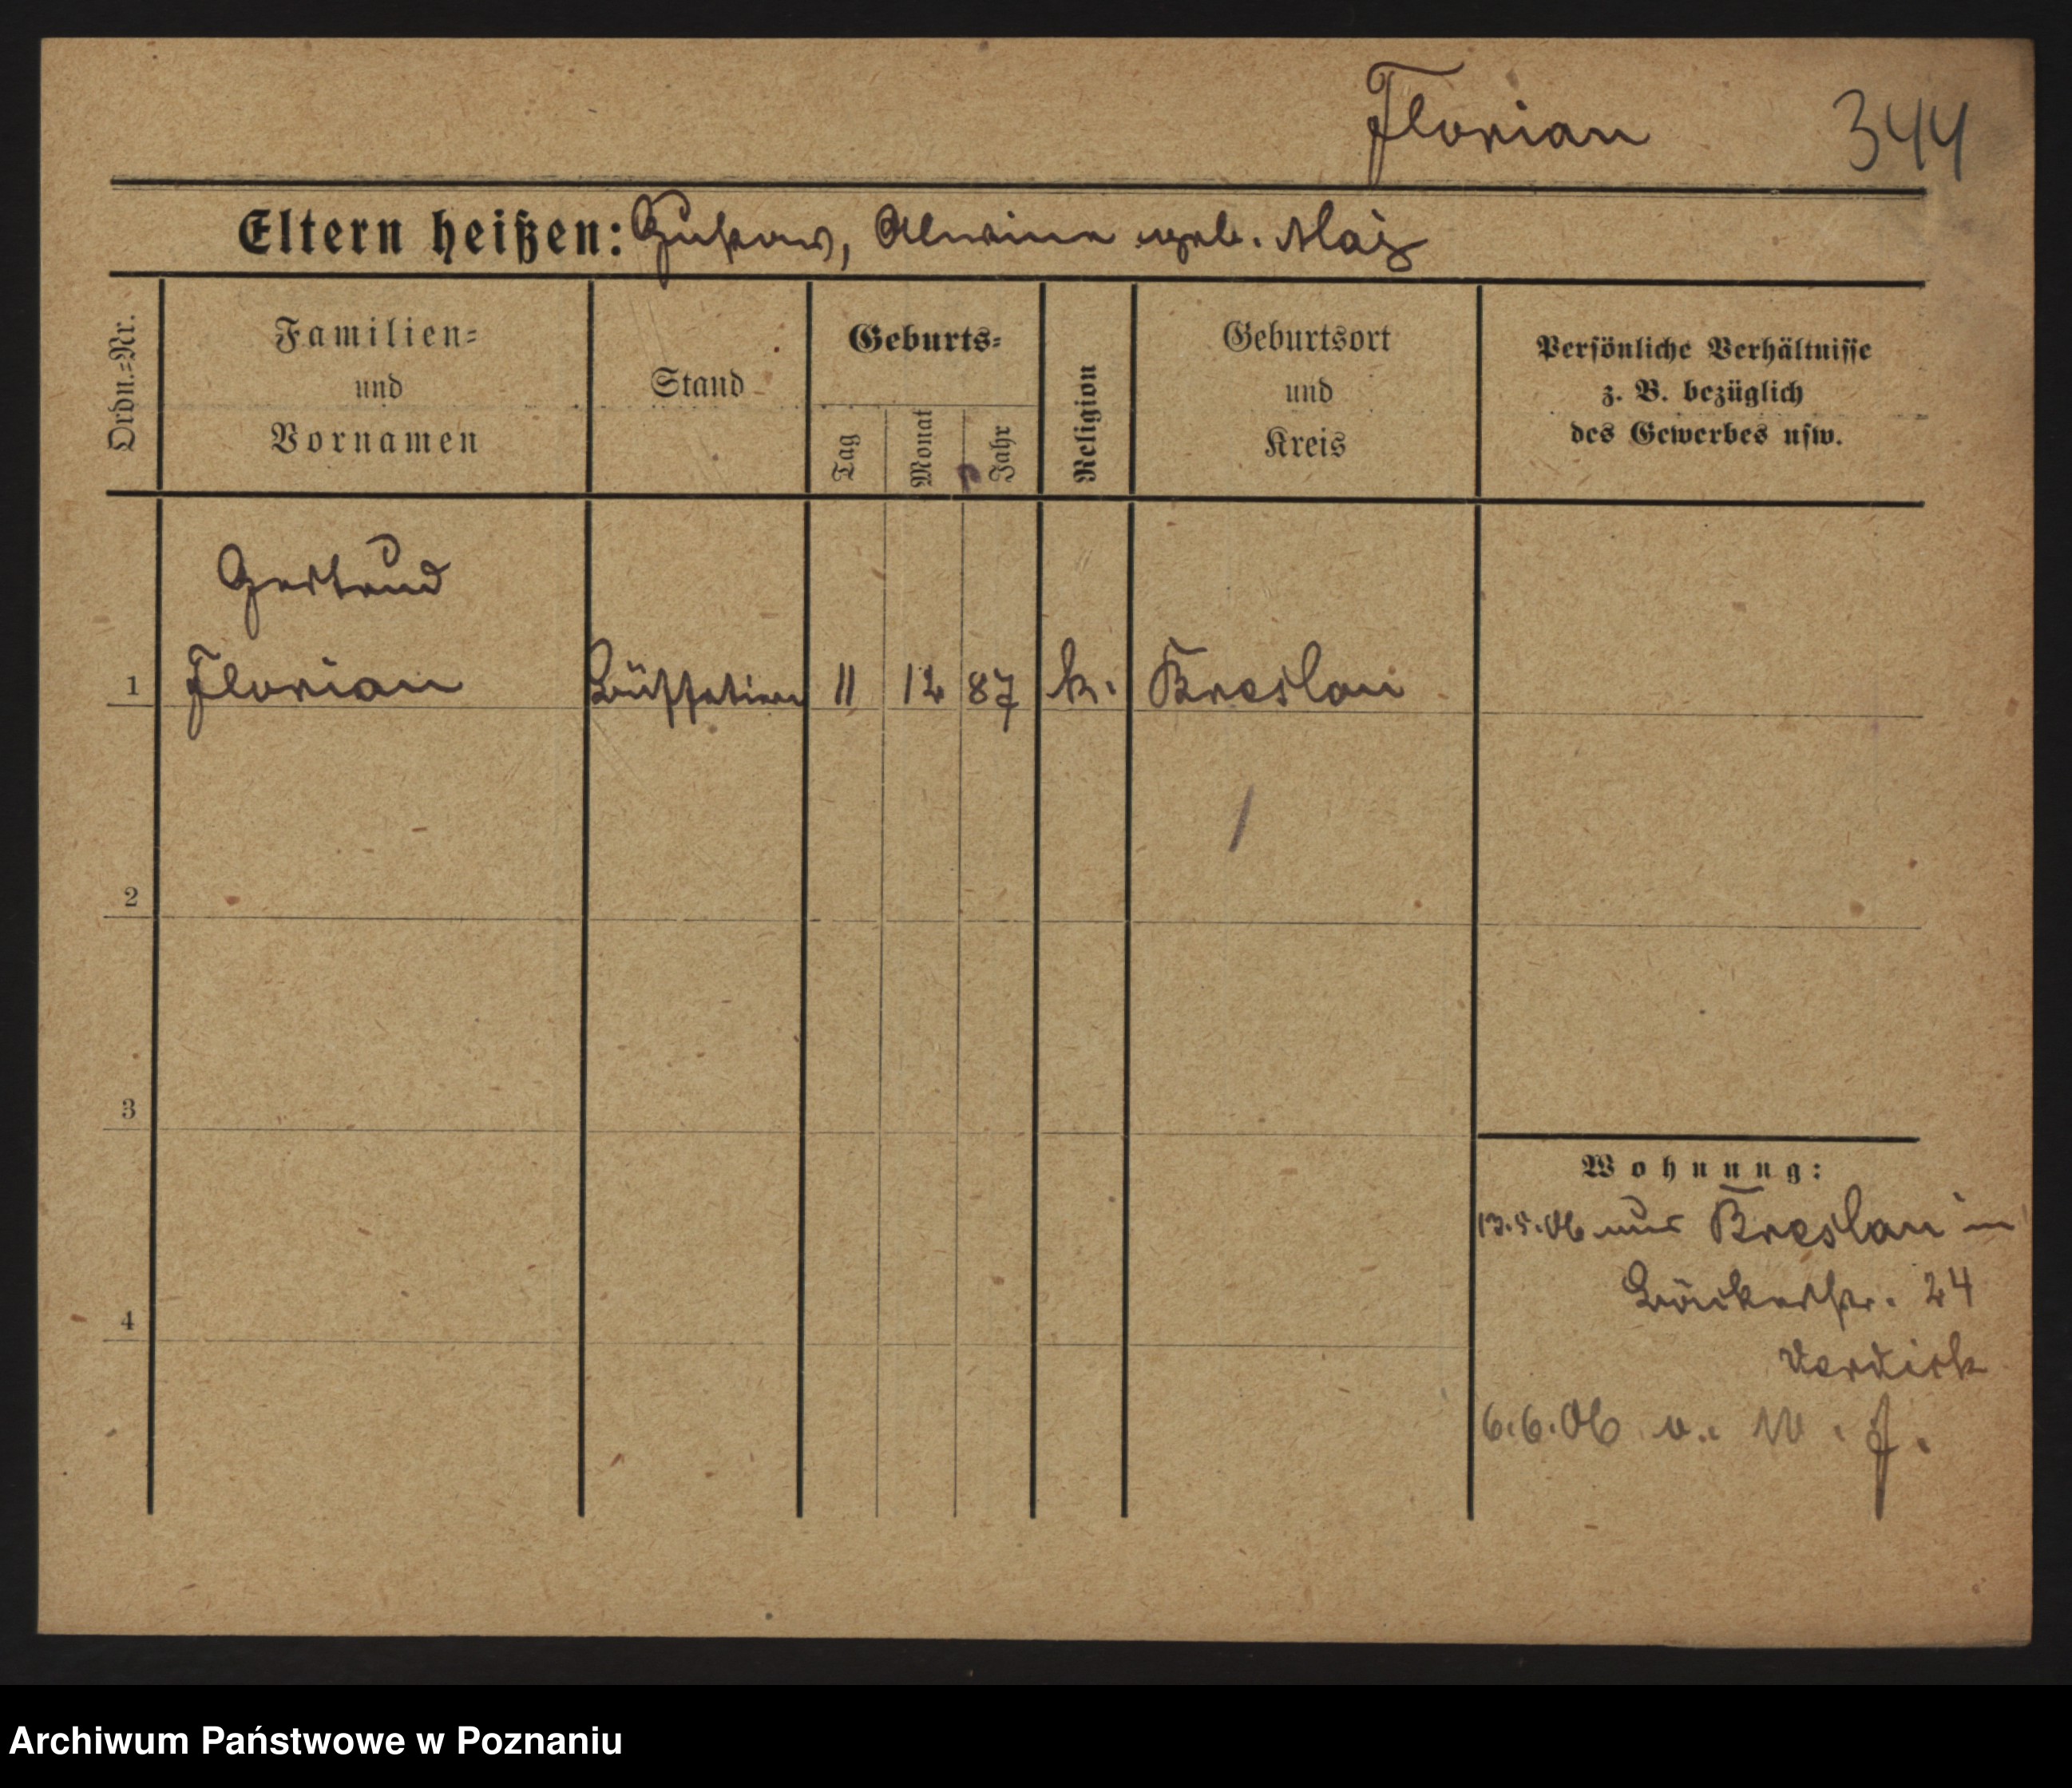 Florian 344
Eltern heißen: Gustav, Alwine geb. Maiz
Ordn.-Nr.
Familien-
und
Vornamen
Stand
Geburts-
Tag
Monat
Jahr
Religion
Geburtsort
und
Kreis
Persönliche Verhältnisse
z. B. bezüglich
des Gewerbes usw.
Gertrud
1 Florian Büffetiere 11 12 87 k. Breslau
2
3
4
Wohnung:
13.5.06 aus Breslau in
Bäckerstr. 24
6.6.06 n. W.
Archiwum Państwowe w Poznaniu